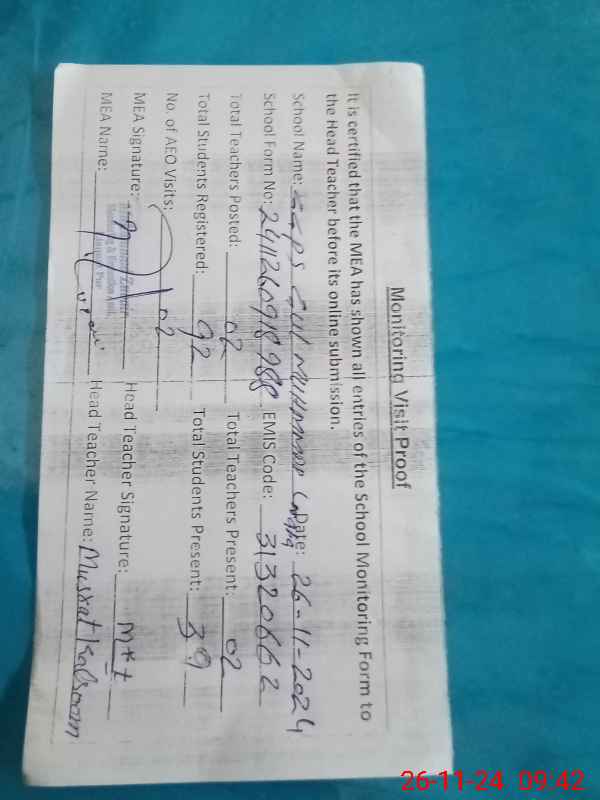 Monitoring Visit Proof
It is certified that the MEA has shown all entries of the School Monitoring Form to
the Head Teacher before its online submission.
School Name: GGPS GUL MUHAMMAD Date: 26-11-2024
School Form No: EMIS Code: 31320662
Total Teachers Posted: 02 Total Teachers Present: 02
Total Students Registered: 92 Total Students Present: 39
No. of AEO Visits: 02
MEA Signature: Head Teacher Signature:
MEA Name: Head Teacher Name: Musrat Kalsoom
26-11-24 09:42